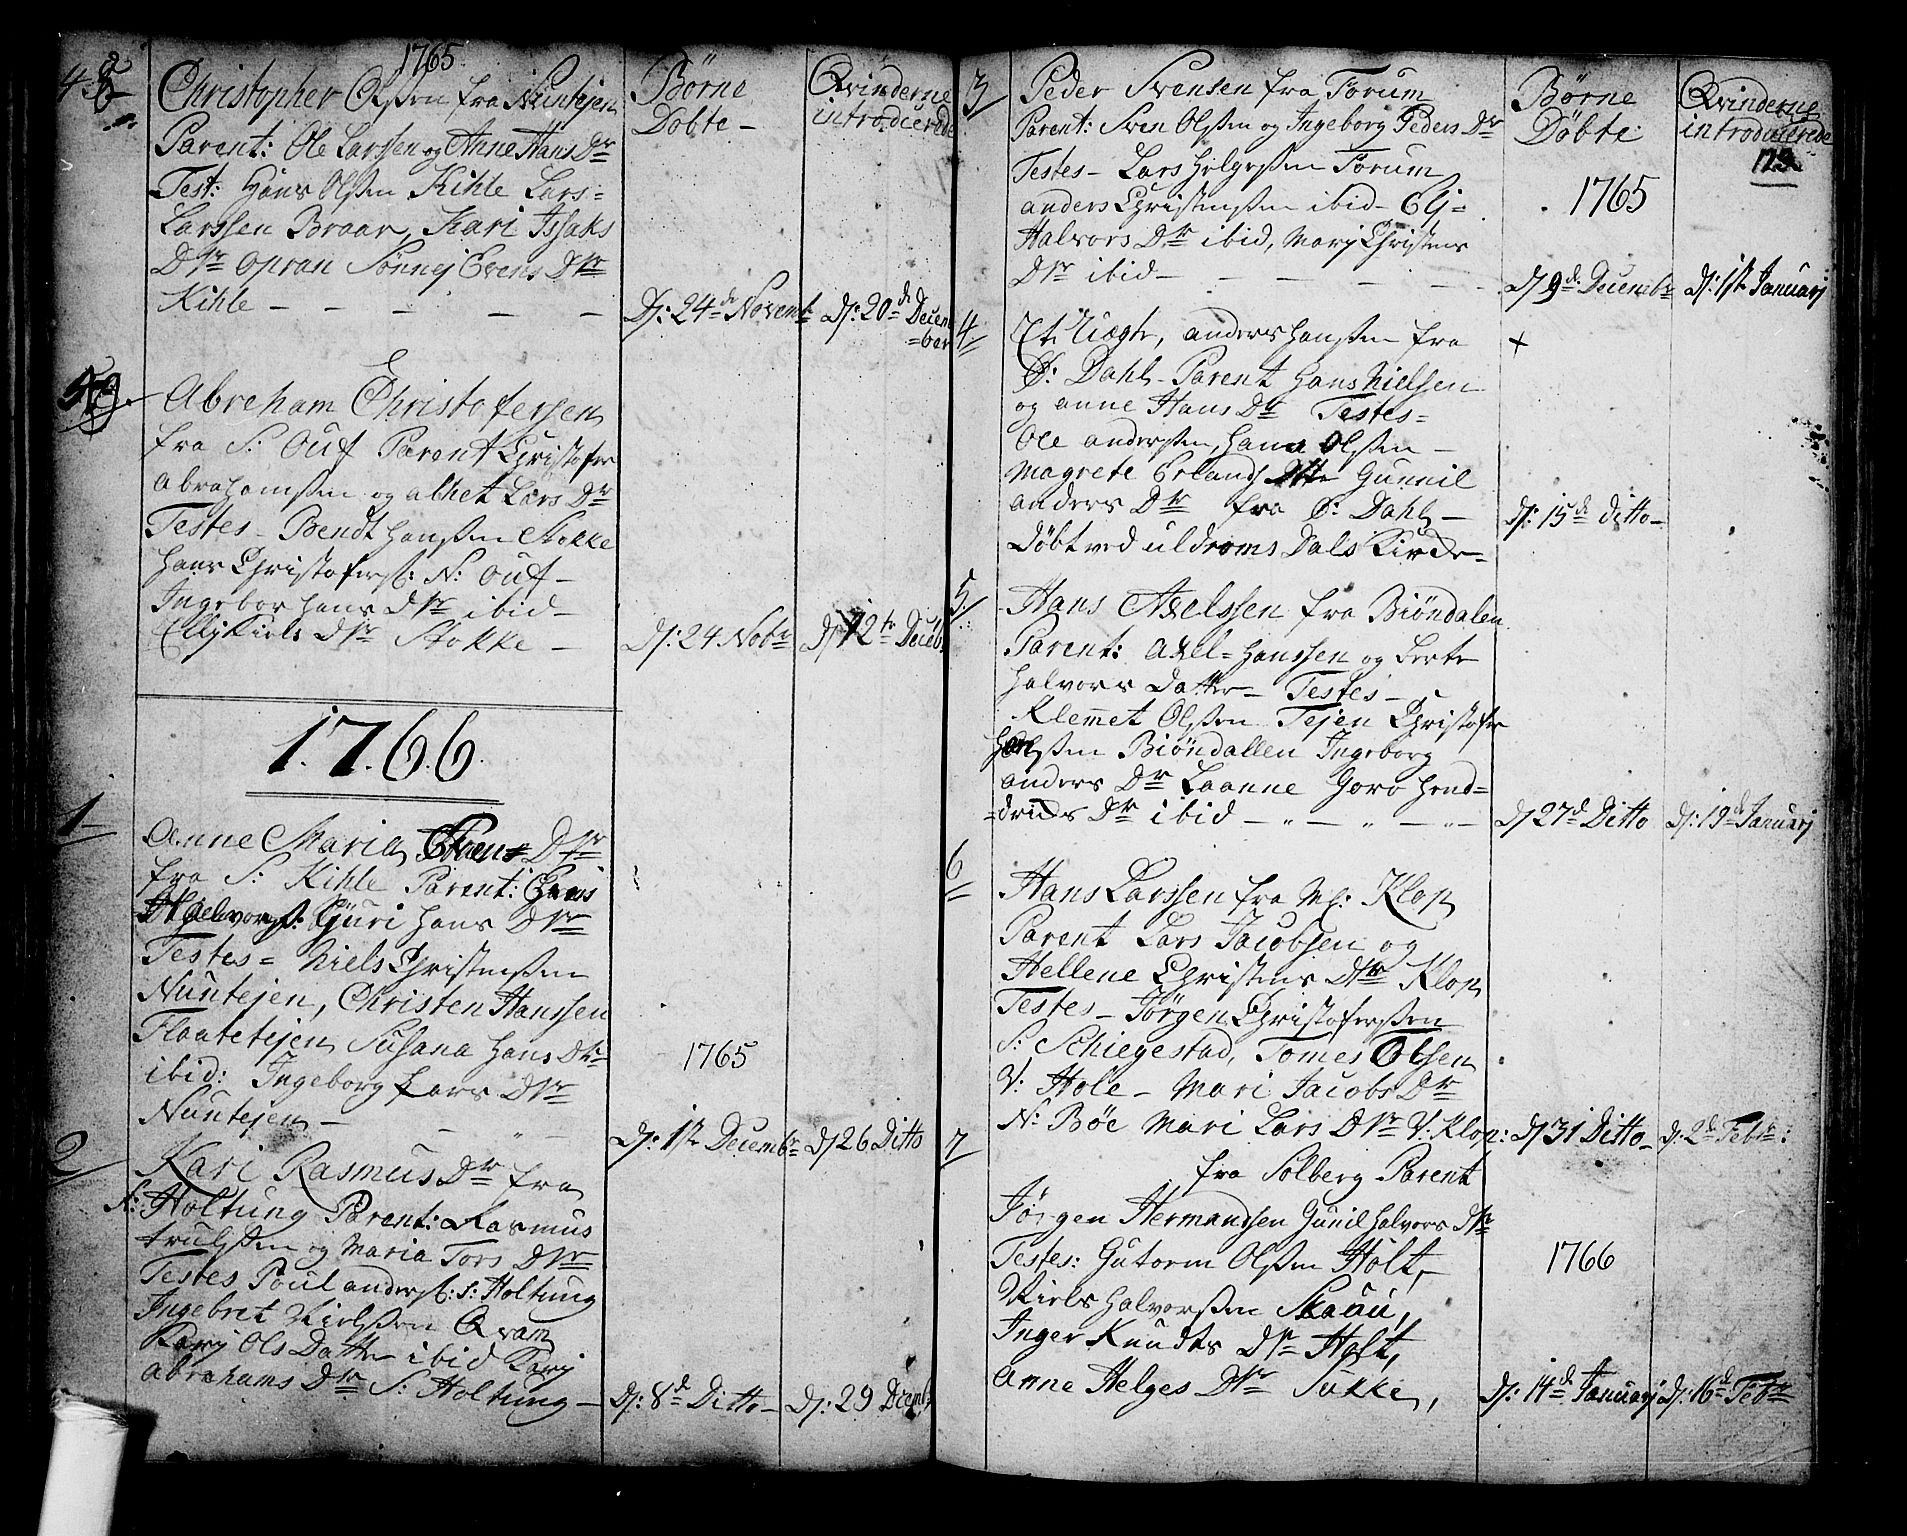 1765
48
Christopher Olssen fra Nuntejen
Parent: Ole Larssen og Anne Hans Dr
Test: Hans Olssen Kihle Lars=
Larssen Braar, Kari Issaks
Dtr opran Sønnej Evens Dtr
Kihle – – – – –
Børne
Dobte –
Qvinderne
introducerede
D: 24de Novembr
D: 20de Decem
=ber
49.
Abreham Christofersen
fra S: Ouf Parent Christofer
Abrahamssen og alhet Lars Dr
Testes – Bendt Hanssen Stokke
Hans Christofers: N: Ouf –
Ingebor Hans Dtr ibid –
Ellj Niels Dtr Stokke –
D: 24 Nobr
D 12te Decb
1766.
1
Anne Maria Evens Dtr
fra S: Kihle Parent: Even
Halvors: Guri Hans Dtr
Testes = Niels Christenssen
Nuntejen, Christen Hanssen
Flaatetejen Susana Hans Dtr
ibid: Ingeborg Lars Dtr
Nuntejen – – –
1765
D: 1ste Decembr
D 26 Ditto
2
Kari Rasmus Dr fra
S: Holtung Parent: Rasmus
trulssen og Maria Tors Dtr
Testes Poul anders: S: Holtung
Ingebret Nielssen Qvam
Karj Ols Datter ibid Karj
Abrahams Dtr S: Holtung –
D: 8de Ditto –
D: 29 Decemb
3
Peder Svensen fra Forum
Parent: Sven Olssen og Ingeborg Peders Dtr
Testes – Lars Helgessen Forum
anders Christenssen ibid – Elj=
Halvors Dtr ibid, Marj Christens
Dtr ibid – – – – – –
Børne
Døbte:
Qvinderne
introducerede
172
1765
D 9de Decembr
D: 1ste Januarj
4
Et Uægte, anders Hanssen fra
Ø: Dahl – Parent Hans Nielsen
og anne Hans Dr Testes =
Ole anderssen, Hans Olssen –
Magrete Erlands Dtr Gunnil
anders Dtr fra Ø: Dahl –
Døbt ved uldroms Dals Kirke –
+
D: 15de Ditto –
5.
Hans Axelssen fra Biøndalen
Parent: Axel = Hanssen og Berte
Halvors Datter – Testes –
Klemmet Olssen Tejen Christofer
Hanssen Biøndallen Ingeborg
anders Dr Laanne Goro Hend=
=drids Dr ibid – „ – „ – „ –
D 27de Ditto
D: 19de Januarj
6
Hans Larssen fra M: Klop
Parent Lars Jacobsen og
Hellene Christens Dtr Klop
Testes – Jørgen Christoferssen
S: Schiegestad, Tomes Olsen
V: Hole – Mari Jacobs Dr
N: Bøe Mari Lars Dtr V: Klop:
D 31 Ditto –
D: 2de Febr:
7
fra Solberg Parent
Jörgen Hermandsen Gunil Halvors Dtr
Testes: Gutorm Olssen Holt,
Niels Halvorssen Skauu,
Inger Knudts Dtr Holt,
Anne Helges Dtr Sukke,
1766
D: 14de Januarj
D: 16de Febr